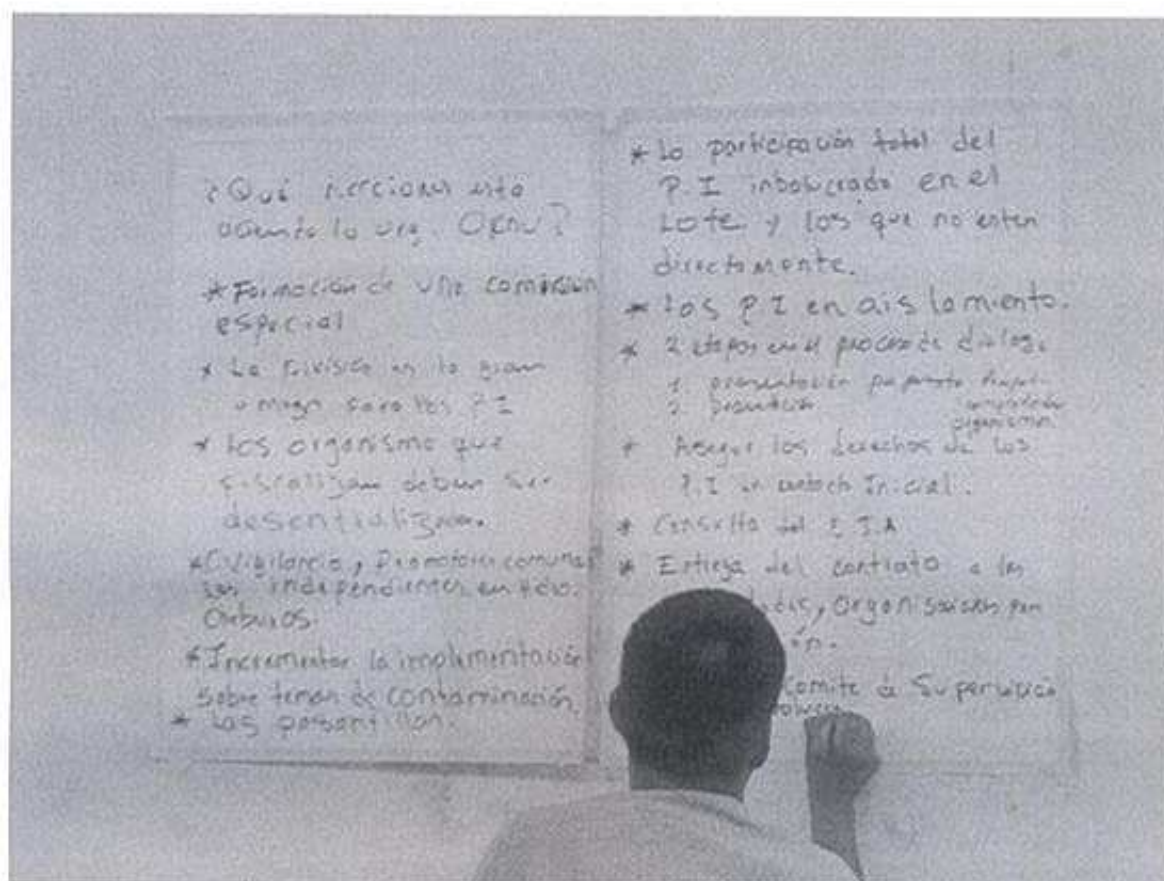 ¿Qué acciones esta
la org. ORAU?
* Formación de una comision
especial
* La division en la gran
* Los organismo que
fiscalizan deben ser
* C/Vigilancia y Promotores comuna
les independientes en Hidro.
Carburos.
* Incrementar la implementación
sobre temas de contaminación.
* Las pasantillas.
* La participación total del
P.I inbolucrado en el
Lote y los que no esten
directamente.
* Los P.I en aislamiento.
* 2 etapas en el proceso de dialog.
1. presentación propuesta
2.
organismos
* Asegur los derechos de los
P.I en contach Inicial.
* Consulta del E I A
* Entrega del contrato a las
Comite de Supervicio